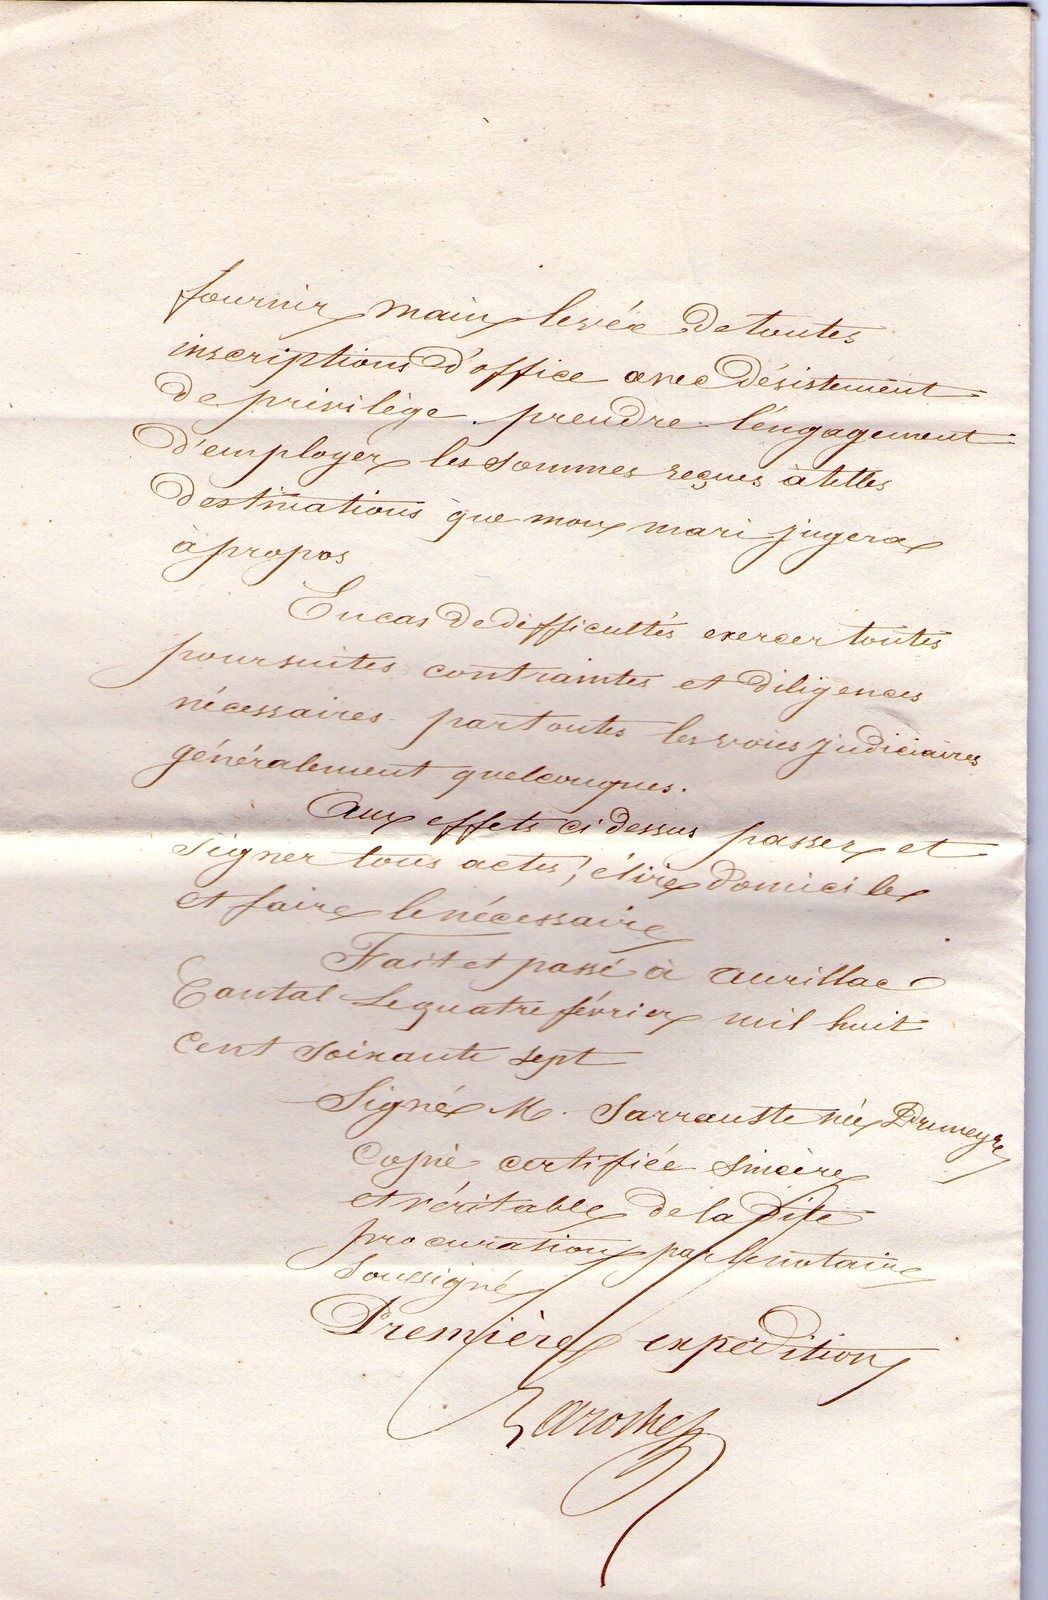 fournir main levée de toutes
inscriptions d'office avec désistement
de privilège. prendre l'engagement
d'employer les sommes reçues à telles
destinations que mon mari jugera
à propos
En cas de difficultés exercer toutes
poursuites contraintes et diligences
nécessaires par toutes les voies judiciaires
généralement quelconques.
Aux effets ci dessus passer et
signer tous actes, élire domicile
et faire le nécessaire
Fait et passé à Aurillac
Cantal le quatre février mil huit
cent soixante sept
Signé M. Sarrauste née
Copie certifiée sincère
et véritable de la dite
procuration par le notaire
soussigné
Première expédition
Laroche